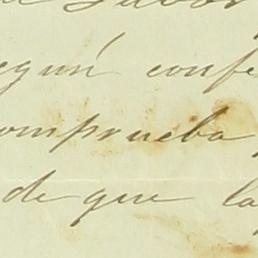 egun confe
omprueba
de que la